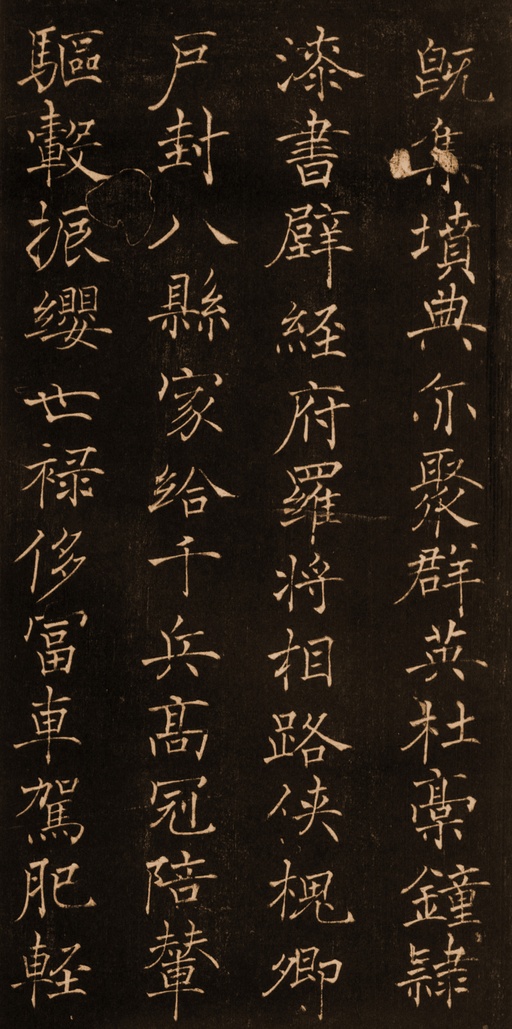 既集墳典亦聚群英杜稾鍾隸
漆書壁経府羅将相路俠槐卿
戸封八縣家給千兵髙冠陪輦
驅轂振纓世禄侈冨車駕肥軽